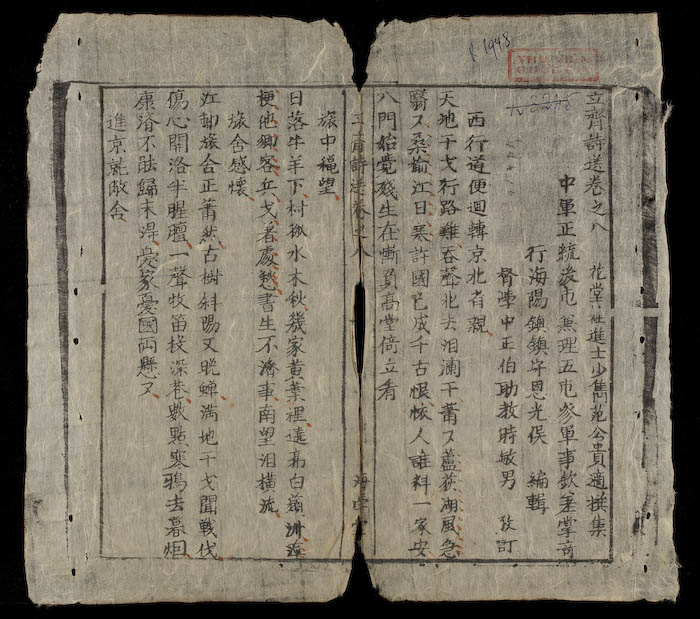 R.1948
THU VIEN
立齋詩選卷之八 花堂社進士少雋范公貴適撰集
中軍正統後屯兼理五屯參軍事欽差掌商
行海陽鎮鎮守恩光侯 編輯
督學中正伯助教時敏男 攷訂
西行道便迴轉京北省親
天地干戈行路難吞聲北去泪潸干蕭又蘆荻湖風急
翳又桑榆江日寒許國已成千古恨
人誰料一家安
入門始覺殘生在慚負高堂倚立看
立齋詩選卷之八
旅中
望
日落牛羊下村孤水木秋幾家黃葉裡遠
白
洲
梗他鄉客兵戈者處愁書生不濟事南望泪橫流
旅舍感懷
江郵旅舍正蕭然古樹斜陽又晚蟬滿地干戈聞戰伐
傷心關洛半腥膻一聲牧笛投深巷數點寒鴉去暮烟
康濟不能歸未得愛家憂國兩懸又
進京就敝舍